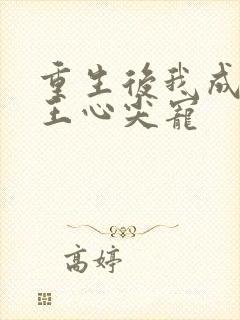 重生後我成
王心尖寵
高婷